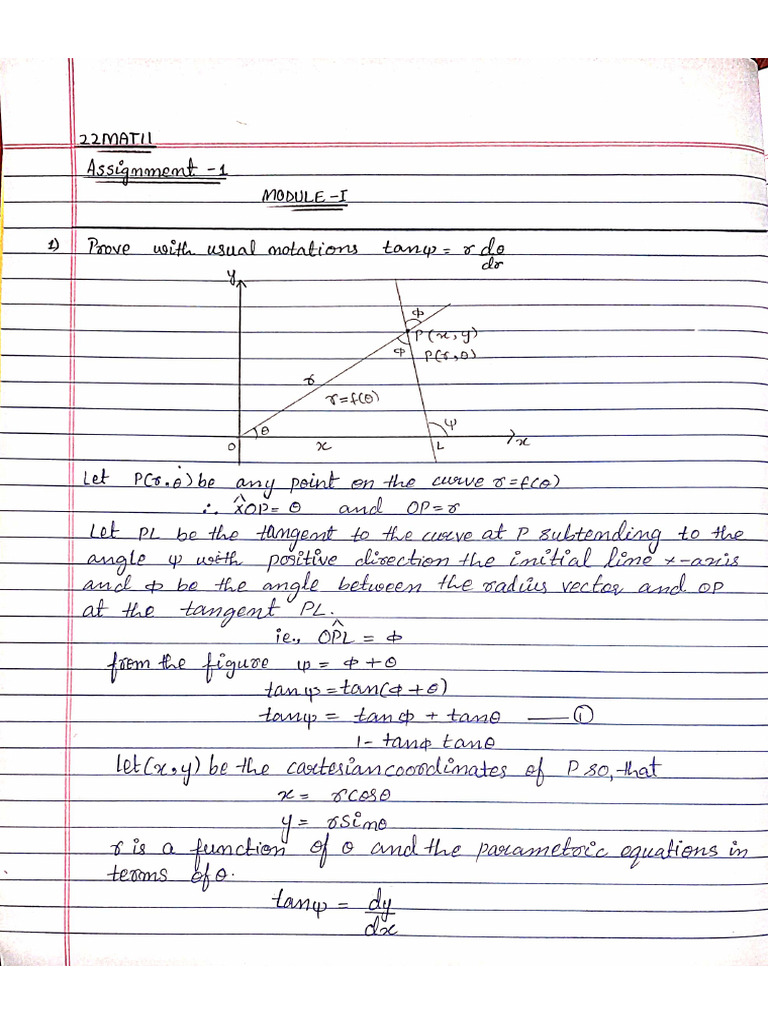 22MAT11
Assignment -1
MODULE-I
1) Prove with usual notations tanψ = r dθ
dr
y
ϕ
P(x,y)
ϕ P(r,θ)
r
r=f(θ)
θ ψ
O x L x
Let P(r,θ) be any point on the curve r=f(θ)
∴ XÔP= θ and OP=r
Let PL be the tangent to the curve at P subtending to the
angle ψ with positive direction the initial line x-axis
and ϕ be the angle between the radius vector and OP
at the tangent PL.
ie., OP̂L = ϕ
from the figure ψ = ϕ+θ
tanψ=tan(ϕ+θ)
tanψ = tanϕ + tanθ —— ①
1- tanϕ tanθ
let(x,y) be the cartesian coordinates of P so, that
x = rcosθ
y = rsinθ
r is a function of θ and the parametric equations in
terms of θ.
tanψ = dy
dx